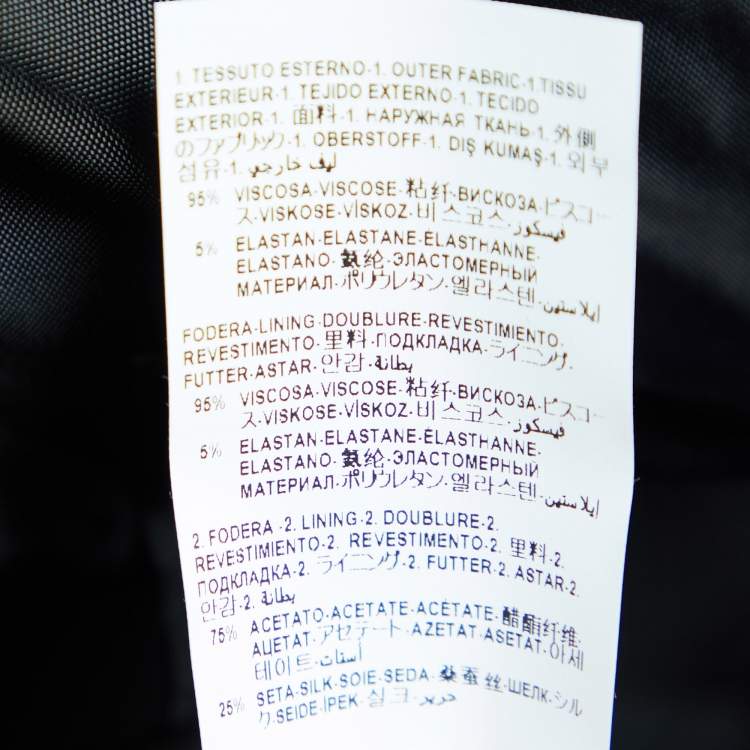 1. TESSUTO ESTERNO-1. OUTER FABRIC-1.TISSU
EXTERIEUR-1. TEJIDO EXTERNO-1. TECIDO
EXTERIOR-1. 面料-1. НАРУЖНАЯ ТКАНЬ-1. 外側
のファブリック-1. OBERSTOFF-1. DIŞ KUMAŞ-1. 외부
섬유-1. ليف خارجي
95% VISCOSA-VISCOSE-粘纤-ВИСКОЗА-ビスコー
ス-VISKOSE-VİSKOZ-비스코스-فيسكوز
5% ELASTAN-ELASTANE-ÉLASTHANNE-
ELASTANO-氨纶-ЭЛАСТОМЕРНЫЙ
МАТЕРИАЛ-ポリウレタン-엘라스텐-إيلاستهين
FODERA-LINING-DOUBLURE-REVESTIMIENTO-
REVESTIMENTO-里料-ПОДКЛАДКА-ライニング-
FUTTER-ASTAR-안감-بطانة
95% VISCOSA-VISCOSE-粘纤-ВИСКОЗА-ビスコー
ス-VISKOSE-VİSKOZ-비스코스-فيسكوز
5% ELASTAN-ELASTANE-ÉLASTHANNE-
ELASTANO-氨纶-ЭЛАСТОМЕРНЫЙ
МАТЕРИАЛ-ポリウレタン-엘라스텐-إيلاستهين
2. FODERA -2. LINING-2. DOUBLURE-2.
REVESTIMIENTO-2. REVESTIMENTO-2. 里料-2.
ПОДКЛАДКА-2. ライニング-2. FUTTER-2. ASTAR-2.
안감-2. بطانة
75% ACETATO-ACETATE-ACÉTATE-醋酯纤维-
АЦЕТАТ-アセテート-AZETAT-ASETAT-아세
테이트-أسيتات
25% SETA-SILK-SOIE-SEDA-桑蚕丝-ШЕЛК-シル
ク-SEIDE-İPEK-실크-حرير